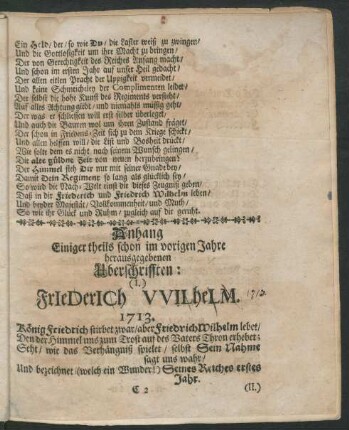 Ein Held/ der/ so wie Du/ die Laster weiß zu zwingen/
Und die Gottlosigkeit um ihre Macht zu bringen/
Der von Gerechtigkeit des Reiches Anfang macht/
Und schon im ersten Jahr auf unser Heil gedacht/
Der allen eitlen Pracht der Uppigkeit vermeidet/
Und keine Schmeicheley der Complimenten leidet/
Der selbst die hohe Kunst des Regiments versteht/
Auf alles Achtung giebt/ und niemahls müßig geht/
Der was er schliessen will erst selber überleget/
Und auch die Bauren wol um ihren Zustand fräget/
Der schon in Friedens-Zeit sich zu dem Kriege schickt/
Und allen helffen will/ die List und Bosheit drückt/
Wie solt dem es nicht nach seinem Wunsch gelingen/
Die alte güldne Zeit von neuen herzubringen?
Der Himmel steh Dir nur mit seiner Gnade bey/
Damit Dein Regiment so lang als glücklich sey/
So wird die Nach-Welt einst dir dieses Zeugniß geben/
Daß in dir Friederich und Friedrich Wilhelm leben/
Und beyder Majestät/ Vollkommenheit/ und Muth/
So wie ihr Glück und Ruhm/ zugleich auf dir geruht.
Anhang
Einiger theils schon im vorigen Jahre
herausgegebenen
Uberschrifften:
(I.)
FrIeDerICh VVILheLM. 1713.
1713.
König Friedrich stirbet zwar/ aber Friedrich Wilhelm lebet/
Den der Himmel uns zum Trost auf des Vaters Thron erhebet:
Seht/ wie das Verhängniß spielet/ selbst Sein Nahme
sagt uns wahr/
Und bezeichnet (welch ein Wunder!) Seines Reiches erstes
Jahr.
C 2 (II.)